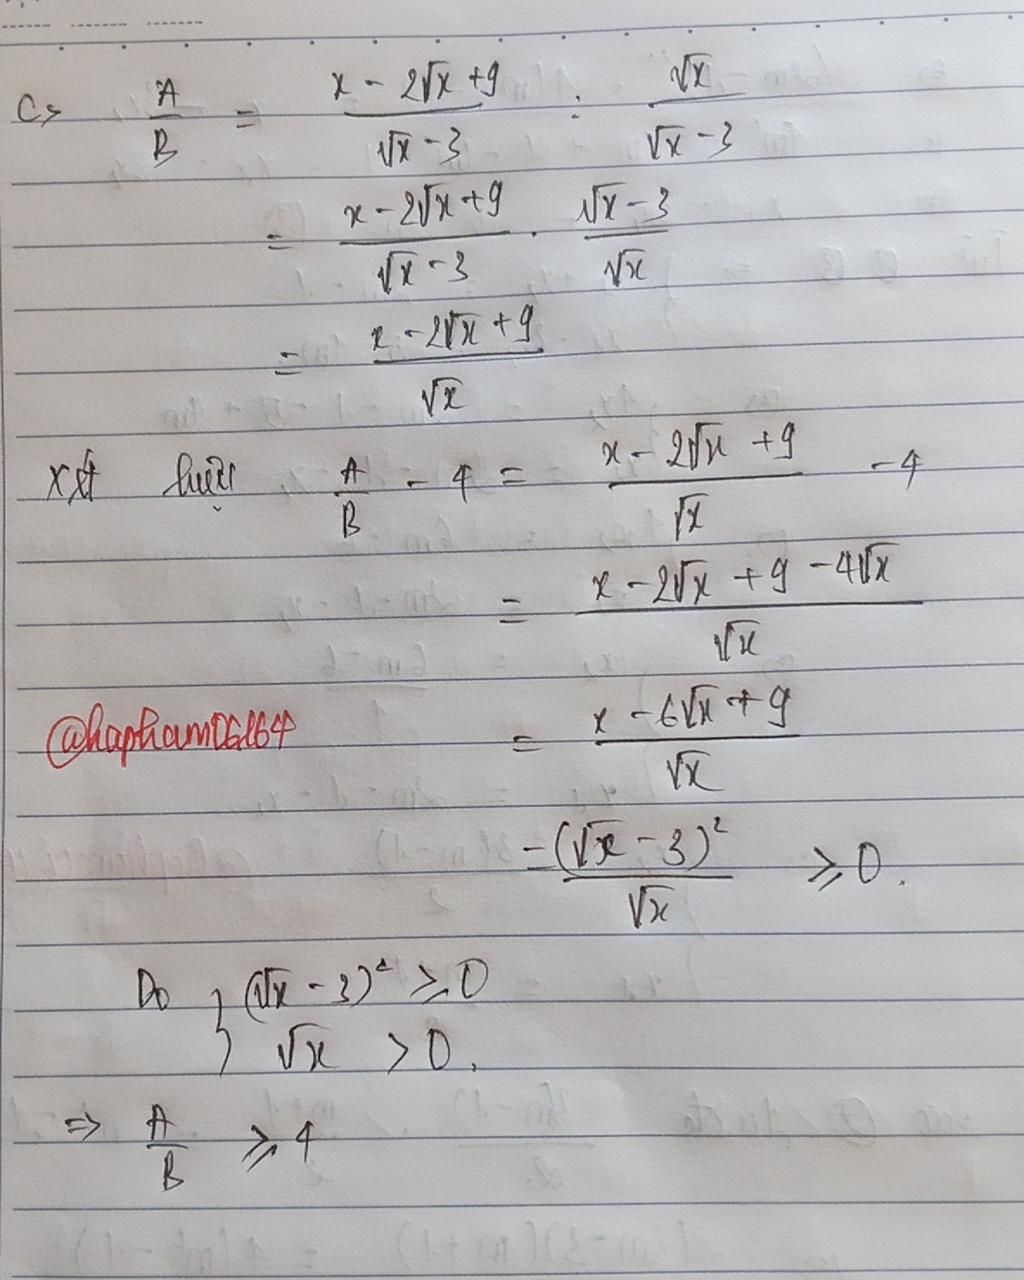 c> A/B = (x - 2√x + 9)/(√x - 3) : √x/(√x - 3)
= (x - 2√x + 9)/(√x - 3) . (√x - 3)/√x
= (x - 2√x + 9)/√x
Xét hiệu A/B - 4 = (x - 2√x + 9)/√x - 4
= (x - 2√x + 9 - 4√x)/√x
@hapham06164
= (x - 6√x + 9)/√x
= (√x - 3)²/√x ⩾ 0.
Do } (√x - 3)² ⩾ 0
√x > 0.
=> A/B ⩾ 4